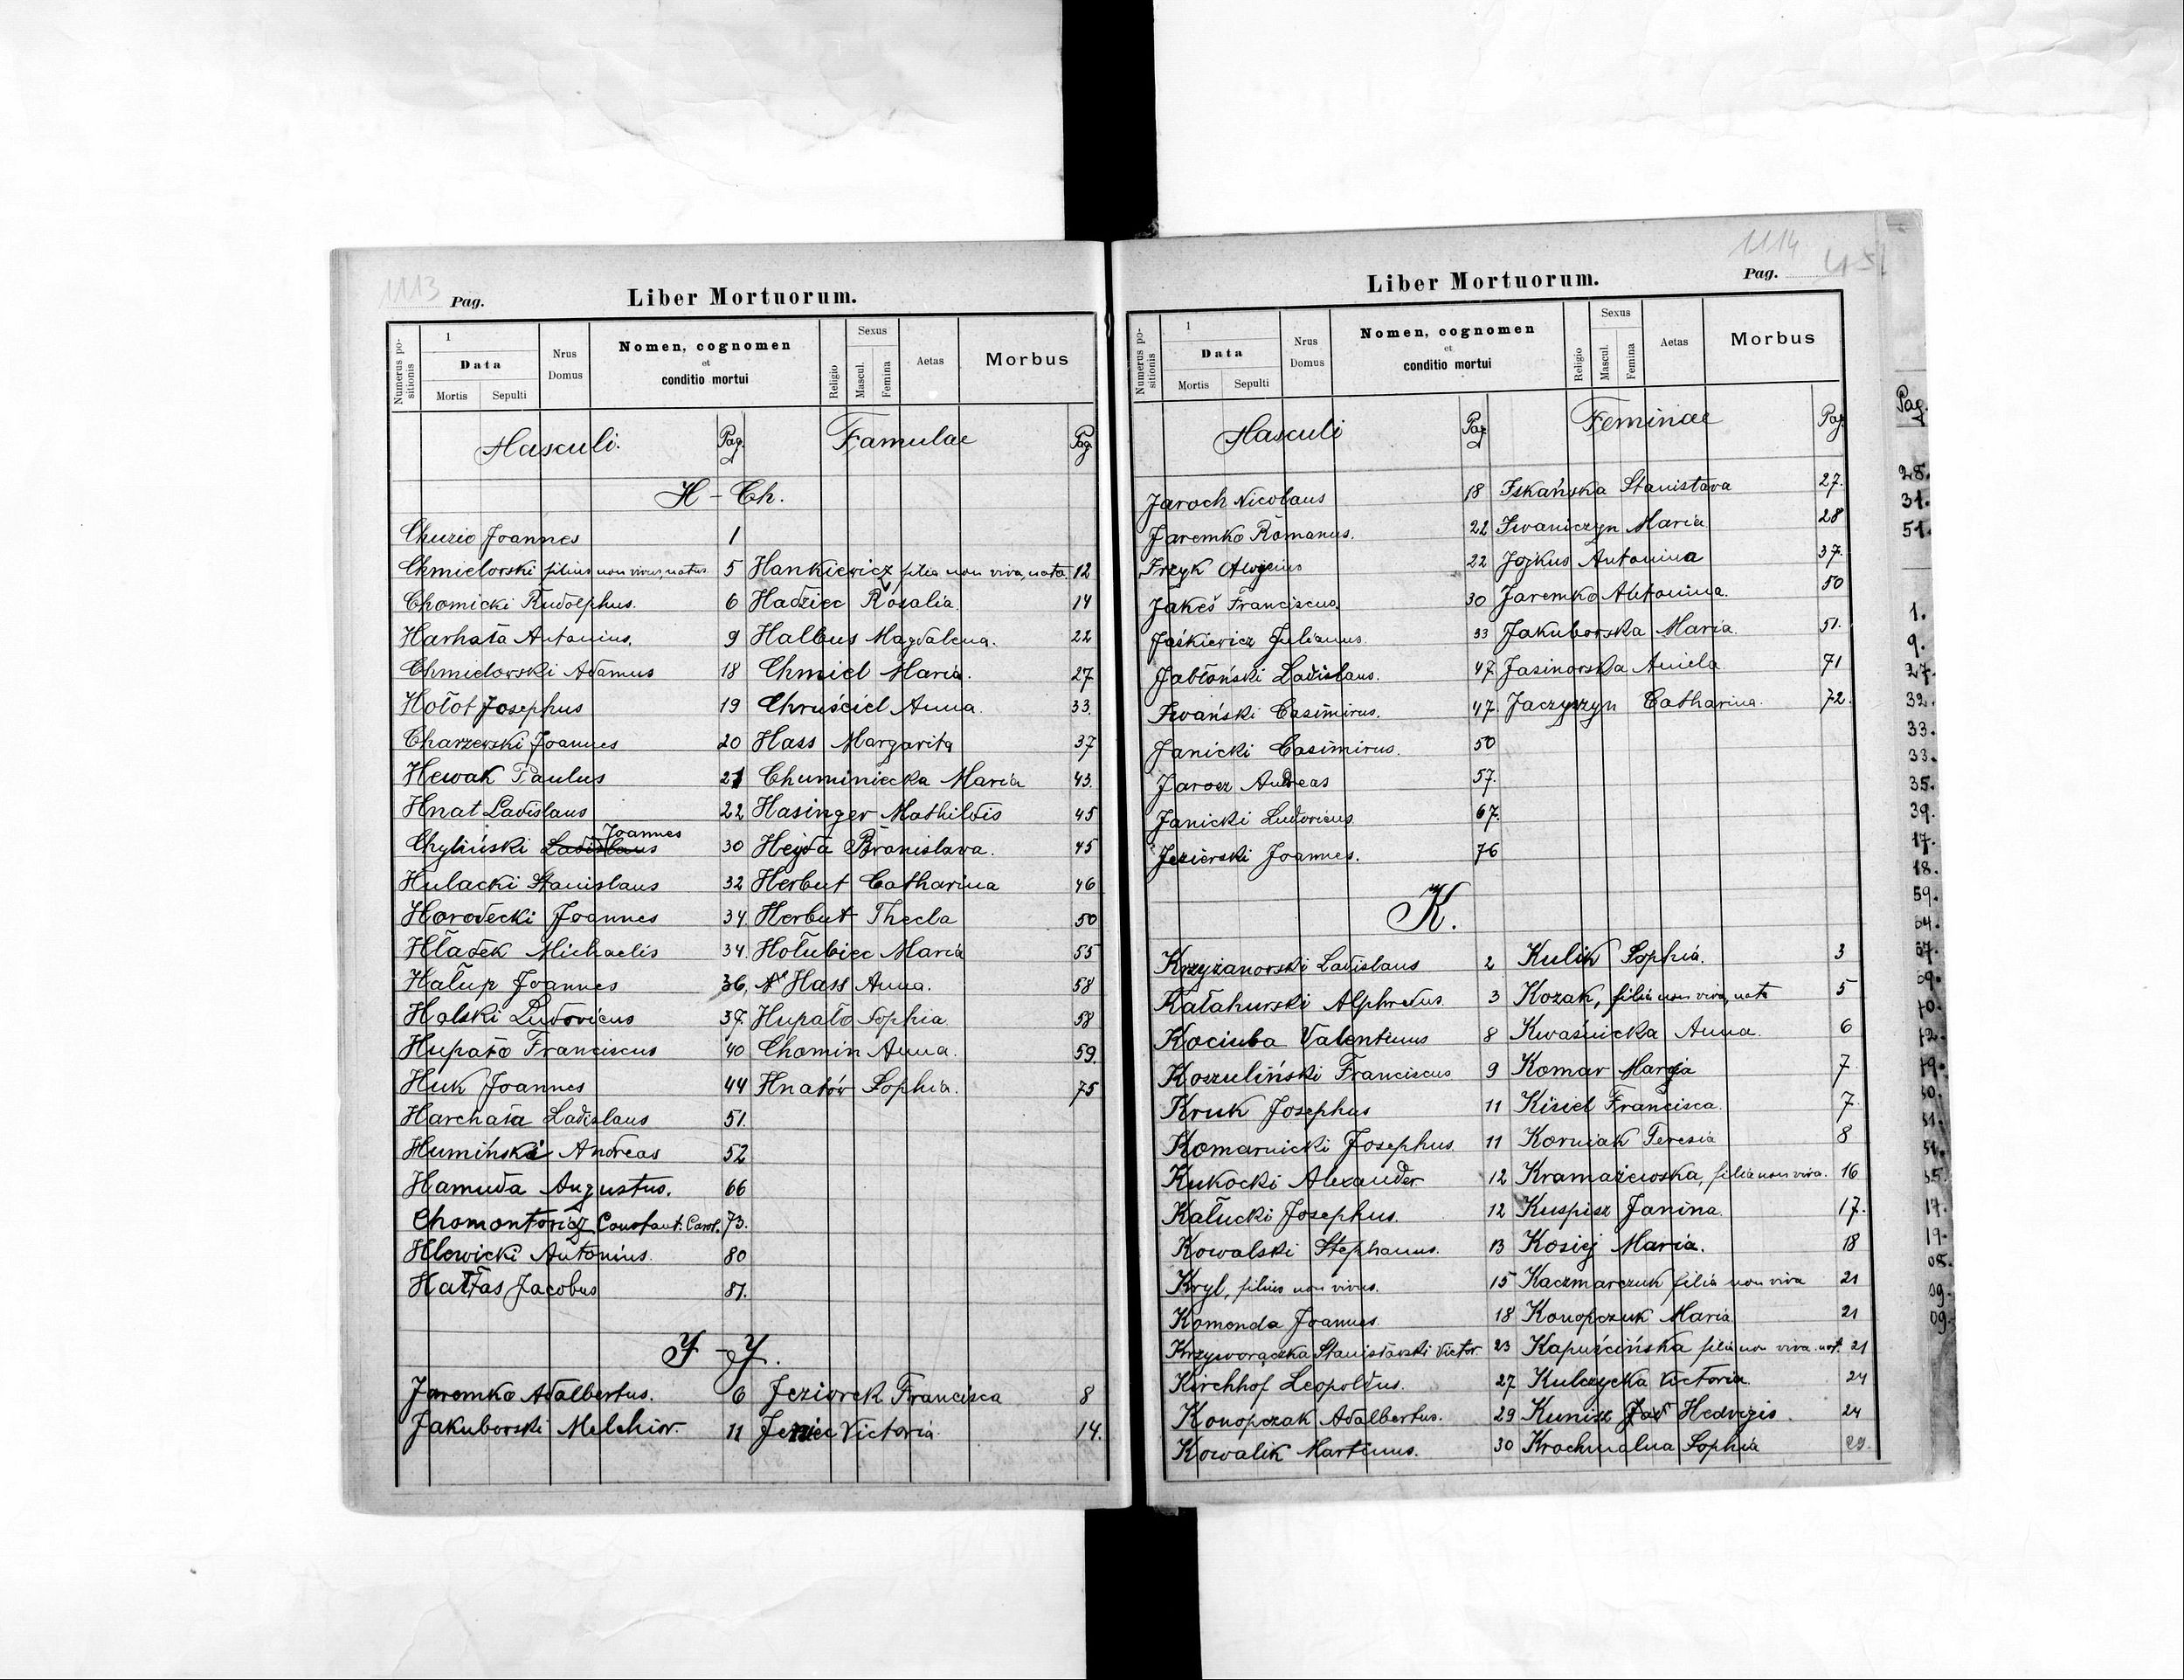 1113 Pag. Liber Mortuorum.
Numerus positionis
1
Data
Mortis Sepulti
Nrus Domus
Nomen, cognomen
et
conditio mortui
Religio
Sexus
Mascul. Femina
Aetas
Morbus
Masculi. Pag. Famulae Pag
H - Ch.
Chuzio Joannes 1
Chmielowski filius non vivus, natus 5 Hankiewicz filia non viva, nata 12
Chomicki Rudolphus. 6 Hadziec Rosalia 14
Harhała Antonius. 9 Halbus Magdalena. 22
Chmielowski Adamus 18 Chmiel Maria. 27
Hołot Josephus 19 Chruściel Anna. 33.
Charzewski Joannes 20 Hass Margarita 37
Hewak Paulus 21 Chuminiecka Maria 43.
Hnat Ladislaus 22 Hasinger Mathildis 45
Joannes
Chyliński Ladislaus 30 Hejda Bronislava. 45
Hulacki Stanislaus 32 Herbut Catharina 46
Horodecki Joannes 34. Herbut Thecla 50
Hładek Michaelis 34. Hołubiec Maria 55
Hałup Joannes 36. Hass Anna. 58
Halski Ludovicus 37. Hupało Sophia 58
Hupało Franciscus 40 Chomin Anna. 59.
Huk Joannes 44 Hnatów Sophia. 75
Harchała Ladislaus 51.
Humiński Andreas 52
Hamuda Augustus. 66
Chomontowicz Constant. Carol. 73.
Hlewicki Antonius. 80
Hałłas Jacobus 81.
I - J.
Jaremko Adalbertus. 6 Jeziorek Francisca 8
Jakubowski Melchior. 11 Victoria 14.
1114
Liber Mortuorum. Pag.
Numerus positionis
1
Data
Mortis Sepulti
Nrus Domus
Nomen, cognomen
et
conditio mortui
Religio
Sexus
Mascul. Femina
Aetas
Morbus
Masculi Pag Feminae Pag
Jaroch Nicolaus 18 Iskańska Stanisława 27.
Jaremko Romanus. 22 Iwaniczyn Maria 28
Irzyk Aloysius 22 Jojkus Antonina 37.
Jakeś Franciscus 30 Jaremko Antonina. 50
Jaśkiewicz Julianus. 33 Jakubowska Maria. 51.
Jabłoński Ladislaus. 47. Jasinowska Aniela 71
Iwański Casimirus. 47 Jaczyszyn Catharina. 72.
Janicki Casimirus. 50
Jarosz Andreas 57.
Janicki Ludovicus 67.
Jezierski Joannes. 76
K.
Krzyżanowski Ladislaus 2 Kulik Sophia. 3
Kałahurski Alphredus. 3 Kozak, filia non viva, nata 5
Kociuba Valentinus 8 Kwaśnicka Anna. 6
Koszuliński Franciscus 9 Komar Maria 7
Kruk Josephus 11 Kisiel Francisca. 7.
Komarnicki Josephus 11 Korniak Teresia 8
Kukocki Alexander 12 Kramażewska, filia non viva. 16
Kałucki Josephus. 12 Kuspisz Janina. 17.
Kowalski Stephanus. 13 Kosiej Maria. 18
Kryl, filius non vivus. 15 Kaczmarczuk filia non viva 21
Komenda Joannes. 18 Konopczuk Maria 21
Krzyworączka Stanisławski Victor. 23 Kapuścińska filia non viva. nat. 21
Kirchhof Leopoldus. 27 Kulczycka Victoria. 24
Konopczak Adalbertus. 29 Kunisz Hedvigis. 24
Kowalik Martinus. 30 Krochmalna Sophia 29.
Pag.
28.
31.
51.
1.
9.
27.
32.
33.
33.
35.
39.
17.
18.
59.